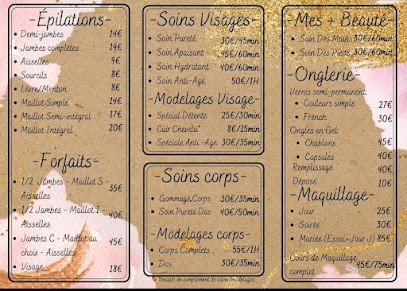 -Épilations-
Demi-jambes 14€
Jambes complètes 14€
Aisselles 9€
Sourcils 8€
Lèvre/Menton 8€
Maillot Simple 14€
Maillot Semi-intégral 17€
Maillot Intégral 20€
-Forfaits-
1/2 Jambes - Maillot S - Aisselles 35€
1/2 Jambes - Maillot I - Aisselles 40€
Jambes C - Maillot au choix - Aisselles 45€
Visage 18€
-Soins Visages-
Soin Pureté 30€/45min
Soin Apaisant 45€/60min
Soin Hydratant 40€/60min
Soin Anti-Age 50€/1H
-Modelages Visage-
Spécial Détente 25€/30min
Cuir Chevelu* 8€/15min
Spéciale Anti-Age 30€/35min
-Soins corps-
Gommage Corps 30€/35min
Soin Pureté Dos 40€/50min
-Modelages corps-
Corps Complets 55€/1H
Dos 30€/35min
-Mes + Beauté-
Soin Des Mains 30€/60min
Soin Des Pieds 35€/60min
-Onglerie-
Vernis semi-permanent:
Couleurs simple 27€
French 30€
Ongles en Gel:
Chablons 45€
Capsules 40€
Remplissage 40€
Dépose 10€
-Maquillage-
Jour 25€
Soirée 30€
Mariée (Essai+Jour J) 85€
Cours de Maquillage complet 45€/75min